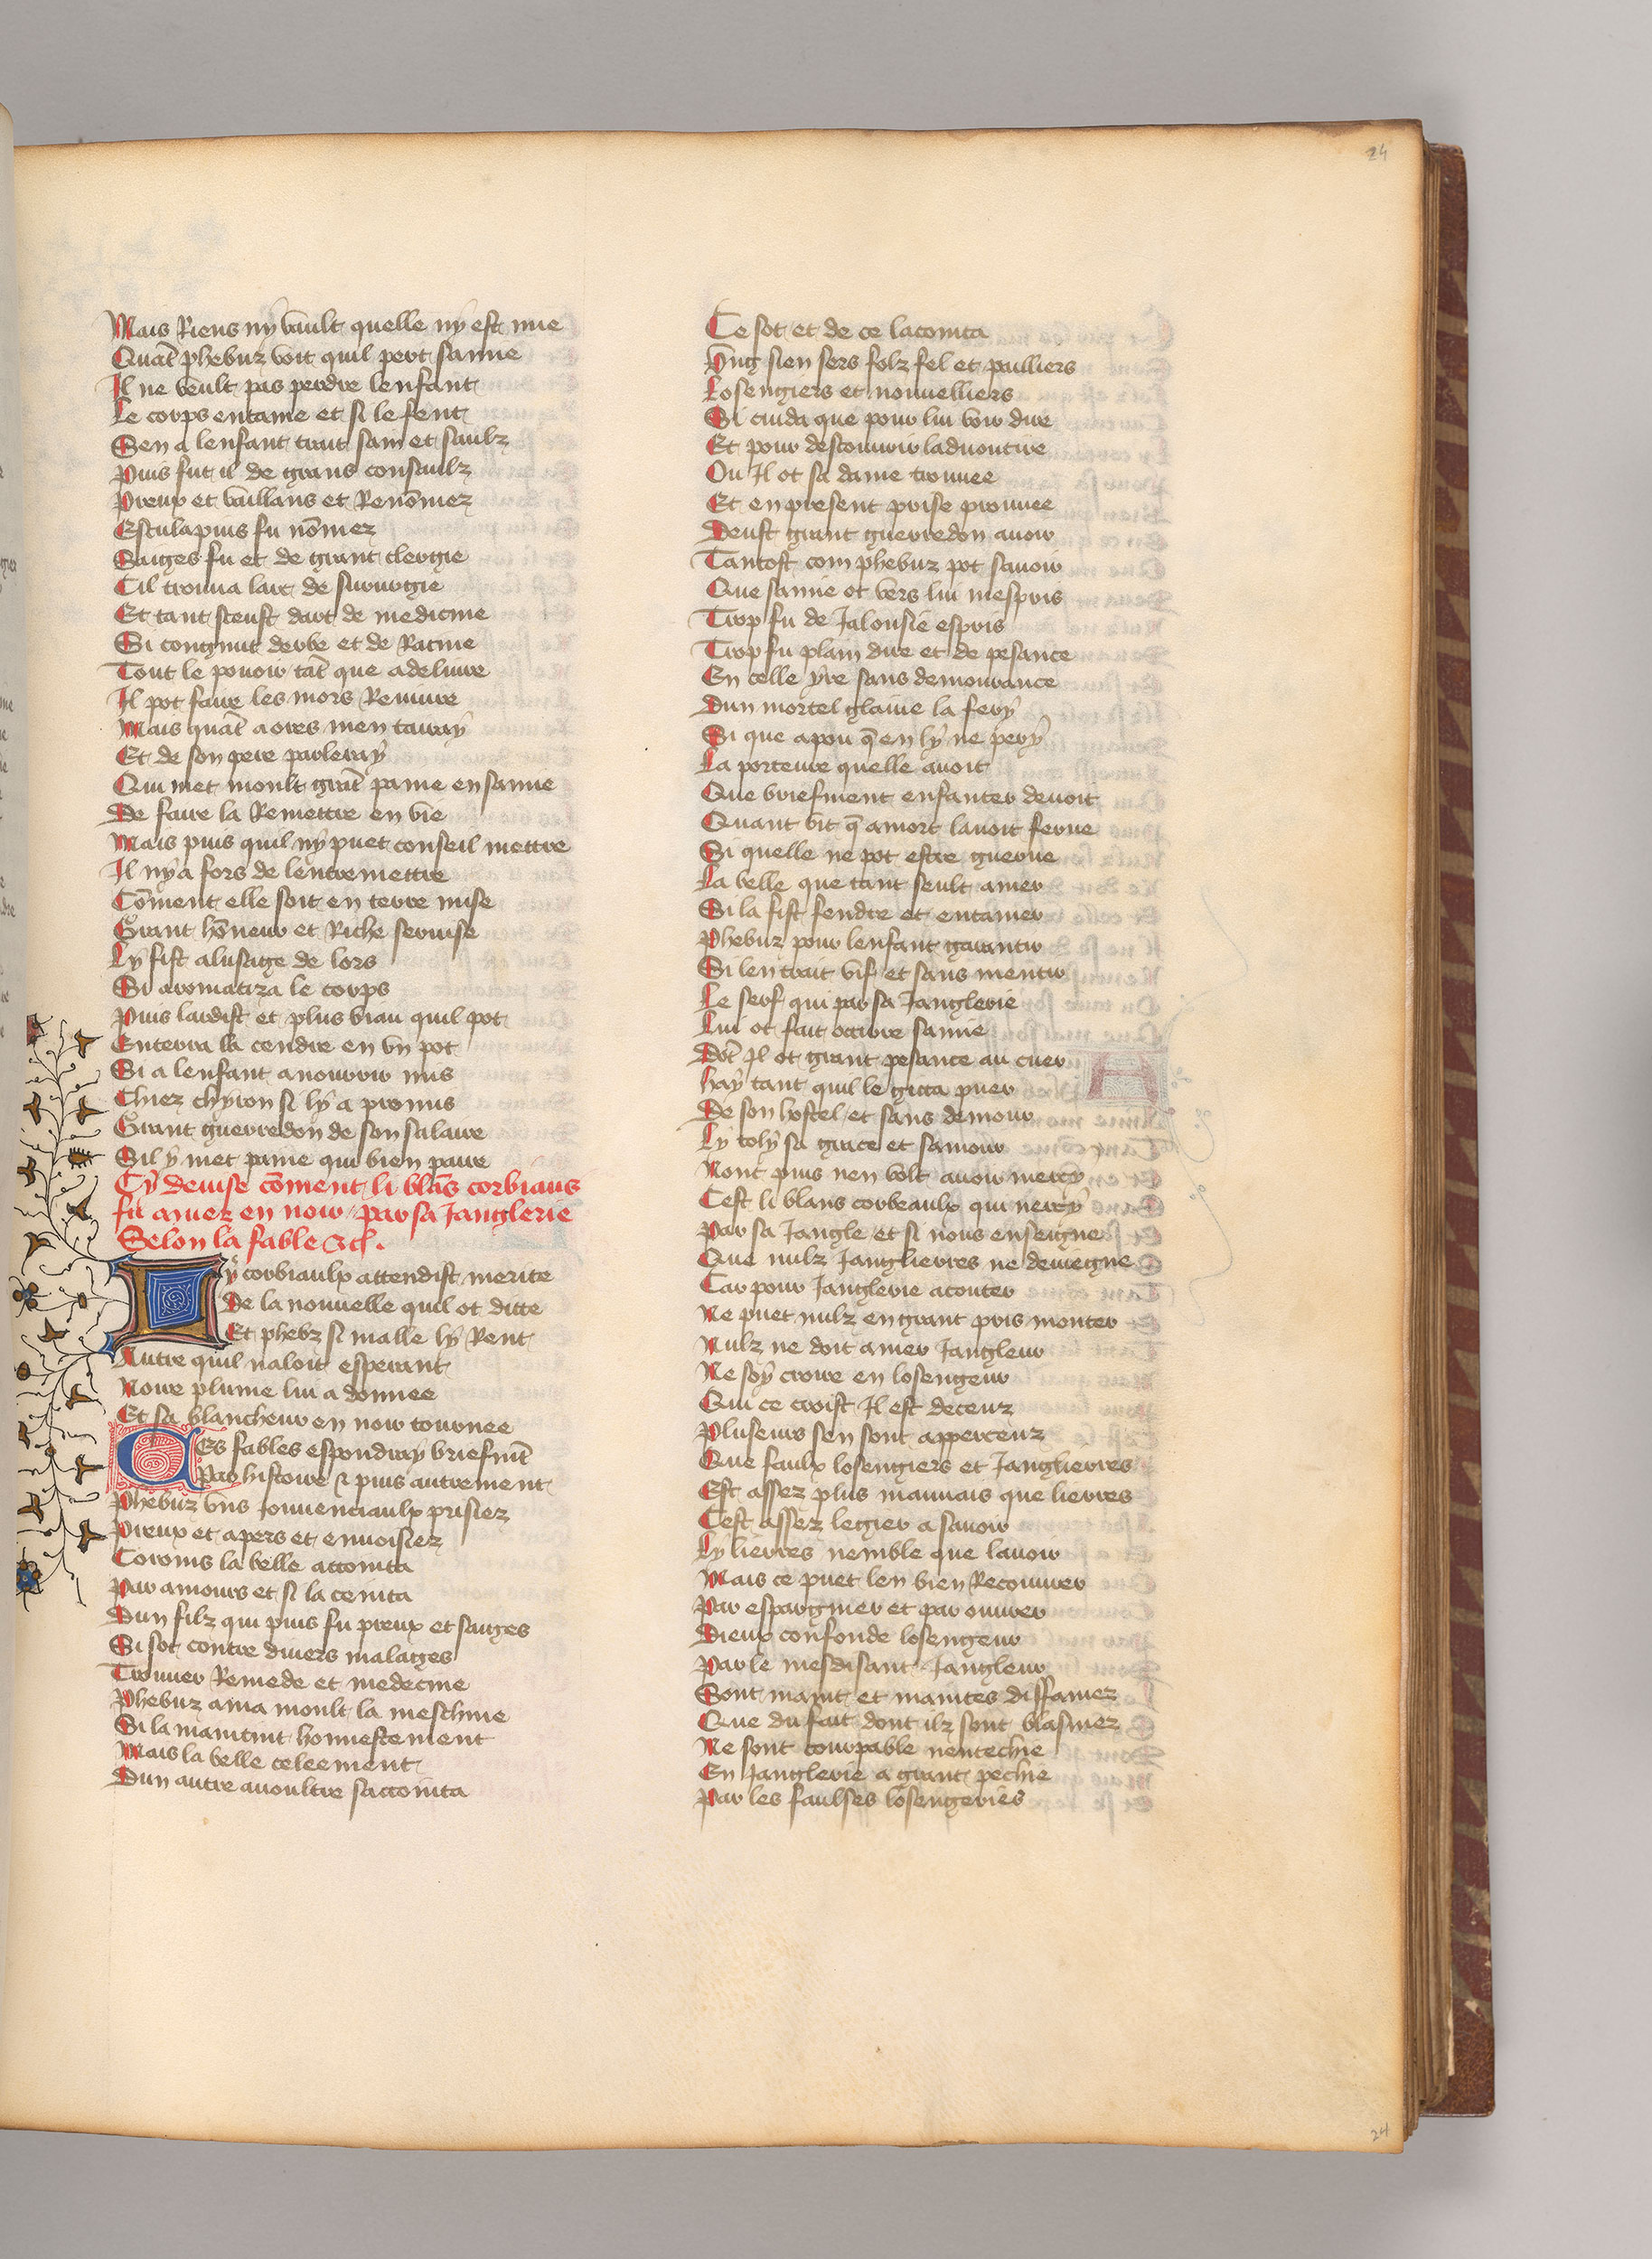 24
Mais Riens ny vault quelle ny est mie
Quāt phebuz voit quil pert samie
Il ne veult pas perdre lenfant
Le corps entame et si le fent
Sen a lenfant trait sain et saulz
Puis fut il de grans consaulz
Preux et vaillans et Renōmez
Esculapius fu nōmez
Saiges fu et de grant clergie
Cil trouua lart de sururgie
Et tant sceust dart de medicine
Si congnut derbe et de Racine
Tout le pouoir tāt que a deliure
Il pot faire les mors Reuiure
Mais quāt a ores men tairay
Et de son pere parleray
Qui met moult grāt paine en samie
De faire la Remettre en vie
Mais puis quil ny puet conseil mettre
Il ny a fors de lentremettre
Cōment elle soit en terre mise
Grant hōneur et Riche seruise
Ly fist a lusage de lors
Si aromatiza le corps
Puis lardist et plus biau quil pot
Enterra la cendre en vn pot
Si a lenfant a nourrir mis
Chiez chyron si ly a promis
Grant guerredon de son salaire
Sil y met paine qui bien paire
Cy deuise cōment li blās corbiaus
fu muez en noir par sa Janglerie
Selon la fable &c.
Ly corbiaulx attendist merite
De la nouuelle quil ot ditte
Et phebz si malle ly Rent
Autre quil naloit esperant
Noire plume lui a donnee
Et sa blancheur en noir tournee
Ces fables espondray briefmēt
Par histoire & puis autrement
Phebuz vns Jouuenciaulx prisiez
Preux et apers et enuoisiez
Coronis la belle accointa
Par amours et si la ceinta
Dun filz qui puis fu preux et saiges
Si sot contre diuers malaiges
Trouuer Remede et medecine
Phebuz ama moult la meschine
Si la maintint honnestement
Mais la belle celeement
Dun autre auoultre saccointa
Ce sot et de ce lacointa
Vng sien sers folz fel et pailliers
Losengiers et nouuelliers
Si cuida que pour lui voir dire
Et pour descouurir laduoutire
Ou Il ot sa dame trouuee
Et en present prise prouuee
Deust grant guerredon auoir
Tantost com phebuz pot sauoir
Que samie ot vers lui mespris
Trop fu de Jalousie espris
Trop fu plain dire et de pesance
En celle yre sans demourance
Dun mortel glaiue la fery
Si que a pou q̄ en ly ne pery
La porteure quelle auoit
Que briefment enfanter deuoit
Quant vit q̄ a mort lauoit ferue
Si quelle ne pot estre guerue
La belle que tant seult amer
Si la fist fendre et entamer
Phebuz pour lenfant garantir
Si len trait vif et sans mentir
Le serf qui par sa Janglerie
Lui ot fait occirre samie
Dōt Il ot grant pesance au cuer
Hay tant quil le gitta puer
De son hostel et sans demour
Ly toly sa grace et samour
Nont puis nen volt auoir mercy
Cest li blans corbeaulx qui nercy
Par sa Jangle et si nous enseigne
Que nulz Janglierres ne deuiegne
Car pour Janglerie a conter
Ne puet nulz en grant pris monter
Nulz ne doit amer Jangleur
Ne soy croire en losengeur
Qui ce croist Il est deceuz
Pluseurs sen sont apperceuz
Que faulx losengiers et Janglierres
Est assez plus mauuais que lierres
Cest assez legier a sauoir
Ly lierres nemble que lauoir
Mais ce puet len bien Recouurer
Par espargnier et par ouurer
Dieux confonde losengeur
Par le mesdisant Jangleur
Sont maint et maintes diffamez
Que du fait dont ilz sont blasmez
Ne sont courpable nentechie
En Janglerie a grant pechie
Par les faulses losengeries
24